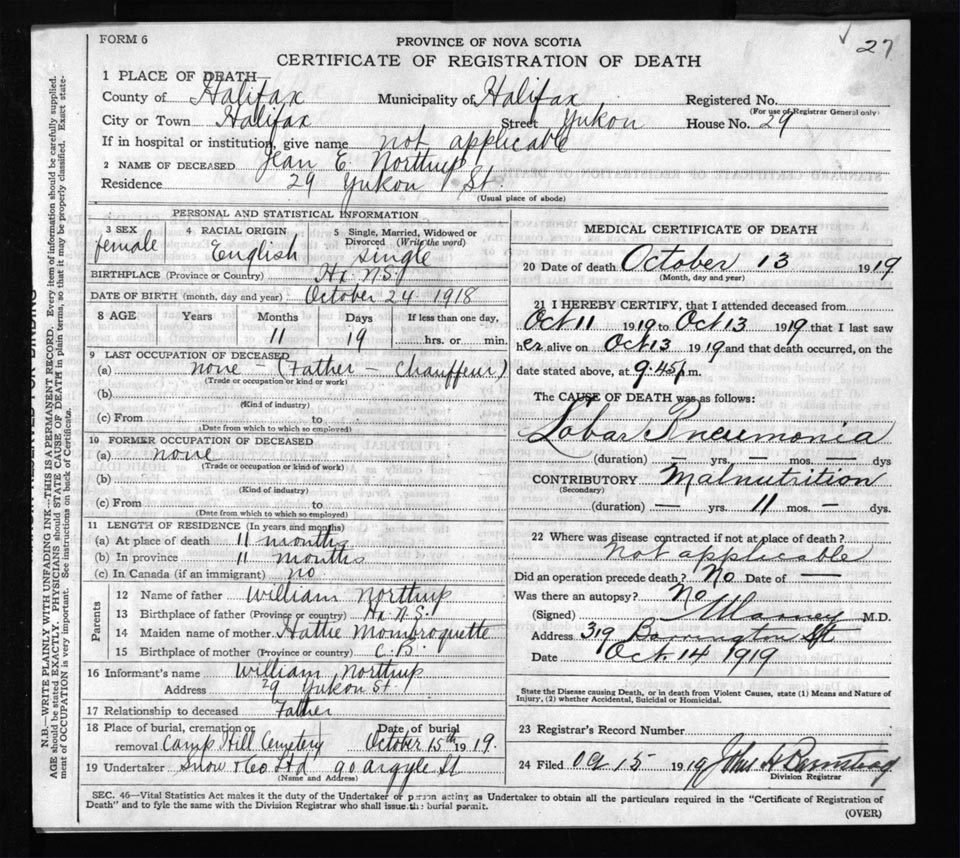 FORM 6
27
PROVINCE OF NOVA SCOTIA
CERTIFICATE OF REGISTRATION OF DEATH
1 PLACE OF DEATH—
County of Halifax Municipality of Halifax Registered No.
(For use of Registrar General only)
City or Town Halifax Street Yukon House No. 29
If in hospital or institution, give name not applicable
2 NAME OF DECEASED Jean E. Northup
Residence 29 Yukon St.
(Usual place of abode)
PERSONAL AND STATISTICAL INFORMATION
3 SEX female 4 RACIAL ORIGIN English 5 Single, Married, Widowed or Divorced (Write the word) single
BIRTHPLACE (Province or Country) Hx. N.S.
DATE OF BIRTH (month, day and year) October 24 1918
8 AGE Years Months 11 Days 19 If less than one day, hrs. or min.
9 LAST OCCUPATION OF DECEASED
(a) none – (Father – Chauffeur)
(Trade or occupation or kind or work)
(b)
(Kind of industry)
(c) From to
(Date from which to which so employed)
10 FORMER OCCUPATION OF DECEASED
(a) none
(Trade or occupation or kind of work)
(b)
(Kind of industry)
(c) From to
(Date from which to which so employed)
11 LENGTH OF RESIDENCE (In years and months)
(a) At place of death 11 months
(b) In province 11 months
(c) In Canada (if an immigrant) no
Parents
12 Name of father William Northup
13 Birthplace of father (Province or country) Hx. N.S.
14 Maiden name of mother Hattie Mombroquette
15 Birthplace of mother (Province or country) C.B.
16 Informant's name William Northup
Address 29 Yukon St.
17 Relationship to deceased Father
18 Place of burial, cremation or removal Camp Hill Cemetery Date of burial October 15th 1919.
19 Undertaker Snow & Co Ltd 90 Argyle St
(Name and Address)
MEDICAL CERTIFICATE OF DEATH
20 Date of death October 13 1919
(Month, day and year)
21 I HEREBY CERTIFY, that I attended deceased from
Oct 11 1919 to Oct 13 1919 that I last saw
her alive on Oct 13 1919 and that death occurred, on the
date stated above, at 9.45 p.m.
The CAUSE OF DEATH was as follows:
Lobar Pneumonia
(duration) — yrs. — mos. — dys
CONTRIBUTORY Malnutrition
(Secondary)
(duration) — yrs. 11 mos. — dys.
22 Where was disease contracted if not at place of death?
not applicable
Did an operation precede death? No Date of —
Was there an autopsy? No
(Signed) M.D.
Address 319 Barrington St
Date Oct. 14 1919
State the Disease causing Death, or in death from Violent Causes, state (1) Means and Nature of
Injury, (2) whether Accidental, Suicidal or Homicidal.
23 Registrar's Record Number
24 Filed 15 1919 John H Barnstead
Division Registrar
SEC. 46—Vital Statistics Act makes it the duty of the Undertaker or person acting as Undertaker to obtain all the particulars required in the "Certificate of Registration of
Death" and to fyle the same with the Division Registrar who shall issue the burial permit.
(OVER)
N.B.—WRITE PLAINLY WITH UNFADING INK—THIS IS A PERMANENT RECORD. Every item of information should be carefully supplied.
AGE should be stated EXACTLY. PHYSICIANS should STATE CAUSE OF DEATH in plain terms, so that it may be properly classified. Exact state-
ment of OCCUPATION is very important. See instructions on back of Certificate.